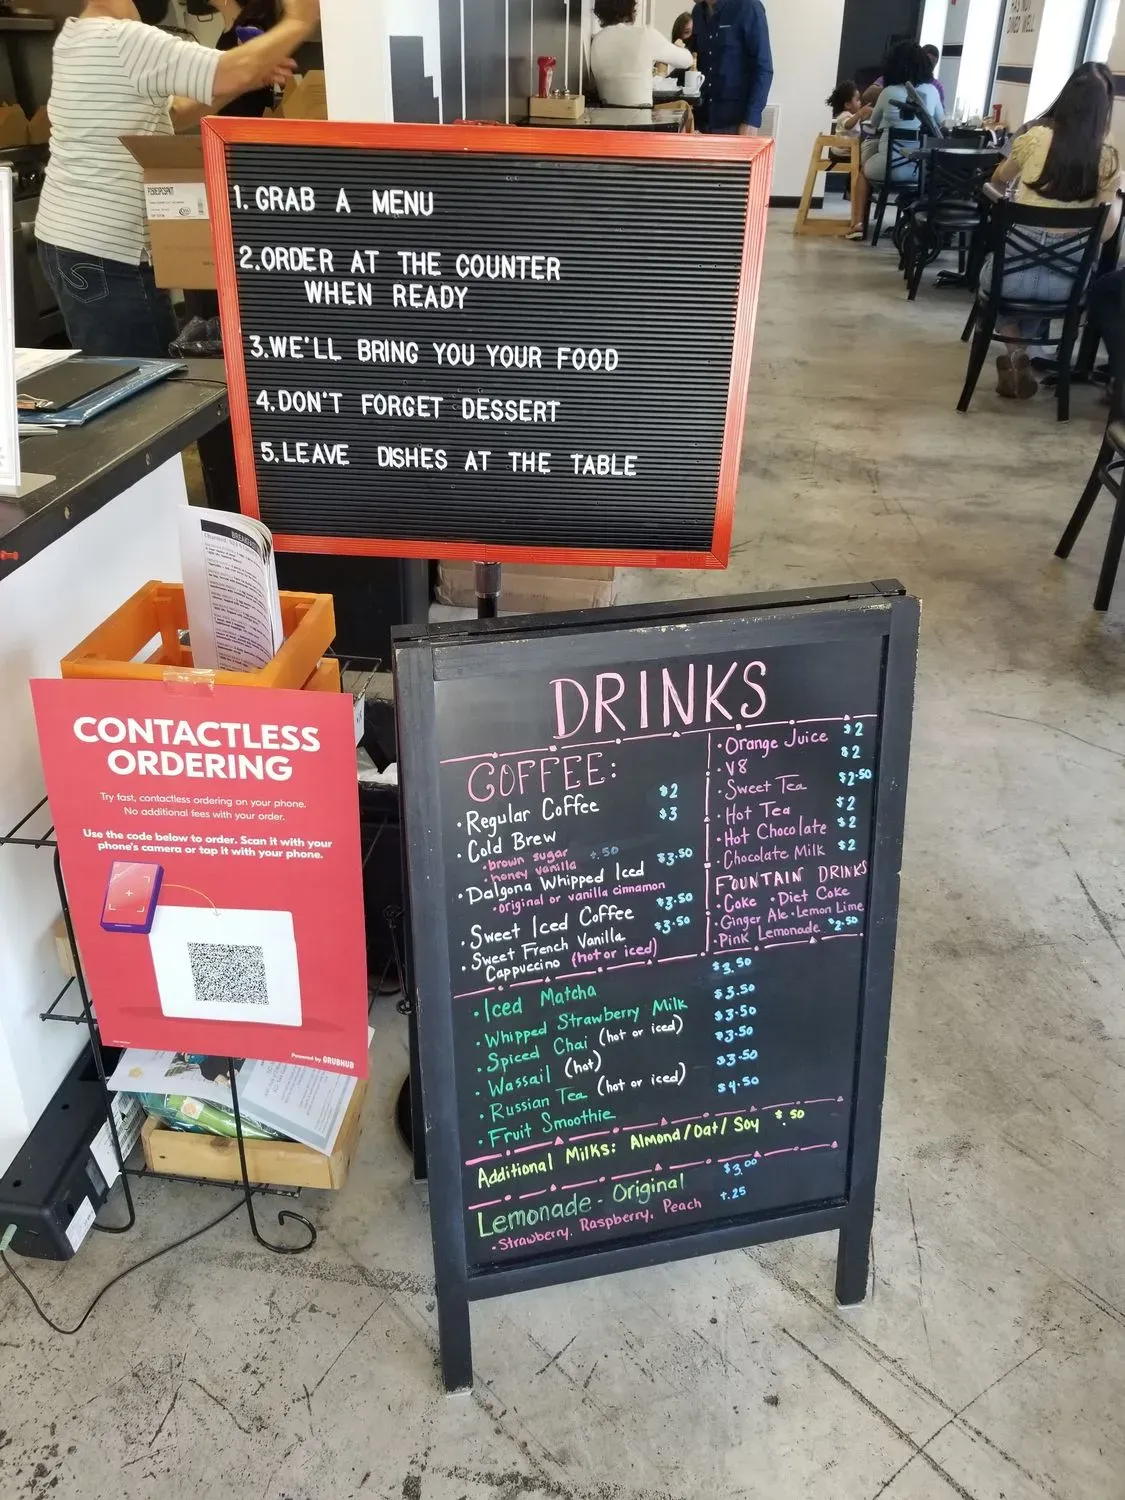 1. GRAB A MENU
2. ORDER AT THE COUNTER
WHEN READY
3. WE'LL BRING YOU YOUR FOOD
4. DON'T FORGET DESSERT
5. LEAVE DISHES AT THE TABLE
BREAKFAST
CONTACTLESS
ORDERING
Try fast, contactless ordering on your phone.
No additional fees with your order.
Use the code below to order. Scan it with your
phone's camera or tap it with your phone.
Powered by GRUBHUB
DRINKS
COFFEE:
• Regular Coffee $2
• Cold Brew $3
• brown sugar +.50
• honey vanilla
• Dalgona Whipped Iced $3.50
• original or vanilla cinnamon
• Sweet Iced Coffee $3.50
• Sweet French Vanilla $3.50
Cappuccino (hot or iced)
• Orange Juice $2
• V8 $2
• Sweet Tea $2.50
• Hot Tea $2
• Hot Chocolate $2
• Chocolate Milk $2
FOUNTAIN DRINKS
• Coke • Diet Coke
• Ginger Ale • Lemon Lime
• Pink Lemonade $2.50
• Iced Matcha $3.50
• Whipped Strawberry Milk $3.50
• Spiced Chai (hot or iced) $3.50
• Wassail (hot) $3.50
• Russian Tea (hot or iced) $3.50
• Fruit Smoothie $4.50
Additional Milks: Almond/Oat/Soy $.50
Lemonade - Original $3.00
• Strawberry, Raspberry, Peach +.25